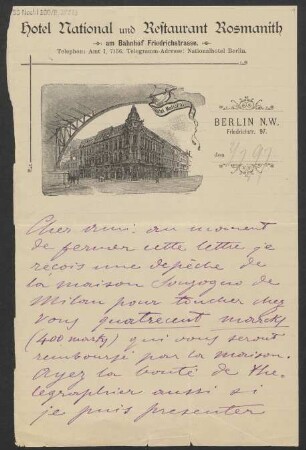 Hotel National und Restaurant Rosmanith
am Bahnhof Friedrichstrasse.
Telephon: Amt I, 7106. Telegramm-Adresse: Nationalhotel Berlin.
BERLIN N.W.
Friedrichstr. 97.
den
Cher ami: au moment
de fermer cette lettre je
reçois une depêche de
la maison Sonzogno de
Milan pour toucher chez
vous quatrecent marchs
(400 marks) qui vous seront
remboursé par la maison.
Ayez la bonté de the-
legraphier aussi si
je puis presenter